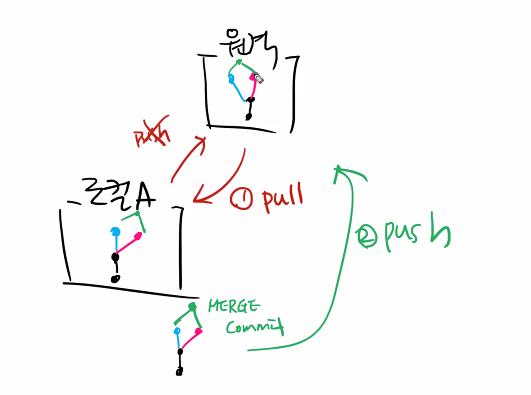 원격
push
① pull
로컬A
② push
MERGE
Commit